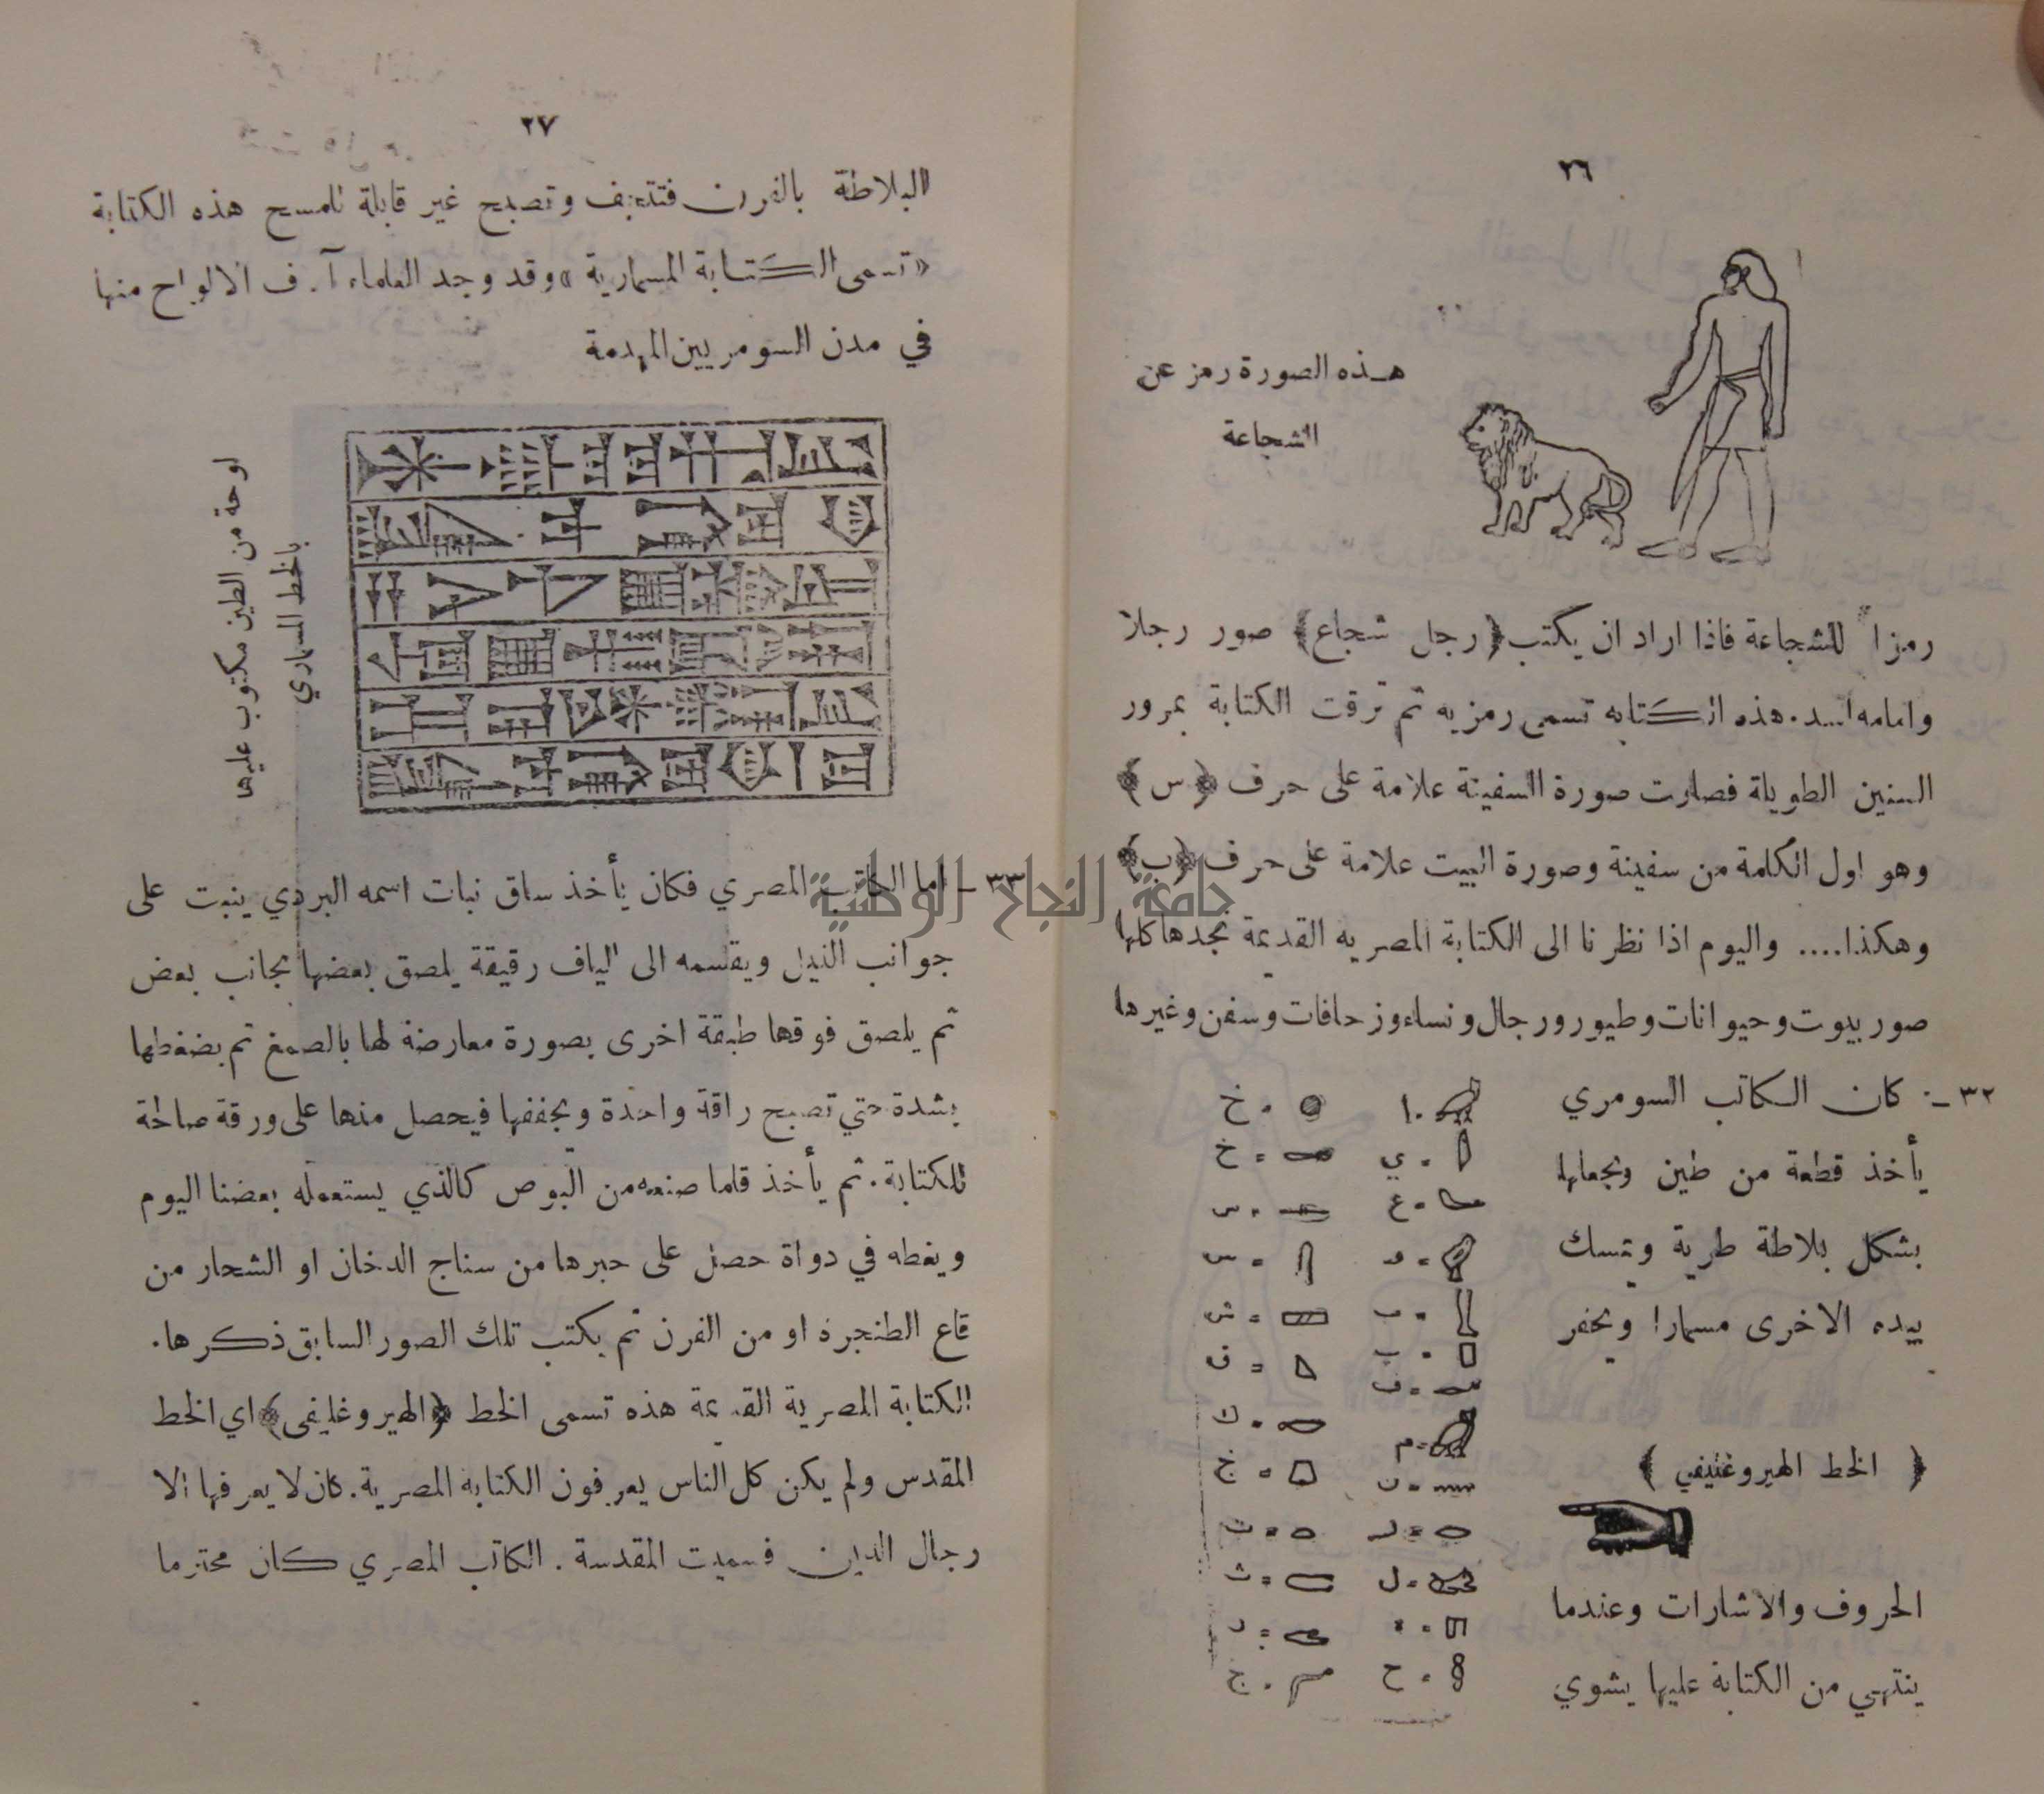 ٢٦
هـذه الصورة رمز عن
الشجاعة
رمزاً للشجاعة فاذا اراد ان يكتب (رجل شجاع) صور رجلا
وامامه اسد. هذه الكتابه تسمى رمزيه ثم ترقت الكتابة بمرور
السنين الطويلة فصارت صورة السفينة علامة على حرف (س)
وهو اول الكلمة من سفينة وصورة البيت علامة على حرف (ب)
وهكذا.... واليوم اذا نظرنا الى الكتابة المصريه القديمة نجدها كلها
صور بيوت وحيوانات وطيور ورجال ونساء وزحافات وسفن وغيرها
٣٢ـ كان الكاتب السومري
يأخذ قطعة من طين ويجعلها
بشكل بلاطة طرية ويمسك
بيده الاخرى مسمارا ويحفر
( الخط الهيروغليفي )
الحروف والاشارات وعندما
ينتهي من الكتابة عليها يشوي
ا
ي
ع
و
ب
ب
ف
م
ن
ر
ل
ه
ح
خ
خ
س
س
ش
ق
ك
ج
ت
ث
د
ج
٢٧
البلاطة بالفرن فتنشف وتصبح غير قابلة للمسح هذه الكتابة
«تسمى الكتابة المسمارية» وقد وجد العلماء آلاف الالواح منها
في مدن السومريين المهدمة
لوحة من الطين مكتوب عليها
بالخط المسماري
٣٣ـ اما الكاتب المصري فكان يأخذ ساق نبات اسمه البردي ينبت على
جوانب النيل ويقسمه الى الياف رقيقة يلصق بعضها بجانب بعض
ثم يلصق فوقها طبقة اخرى بصورة معارضة لها بالصمغ ثم يضغطها
بشدة حتي تصبح راقة واحدة ويجففها فيحصل منها على ورقة صالحة
للكتابة. ثم يأخذ قلما صنعه من البوص كالذي يستعمله بعضنا اليوم
ويغطه في دواة حصل على حبرها من سناج الدخان او الشحار من
قاع الطنجرة او من الفرن ثم يكتب تلك الصور السابق ذكرها.
الكتابة المصرية القديمة هذه تسمى الخط (الهيروغليفى) اي الخط
المقدس ولم يكن كل الناس يعرفون الكتابة المصرية. كان لا يعرفها الا
رجال الدين فسميت المقدسة. الكاتب المصري كان محترما
جامعة النجاح الوطنية